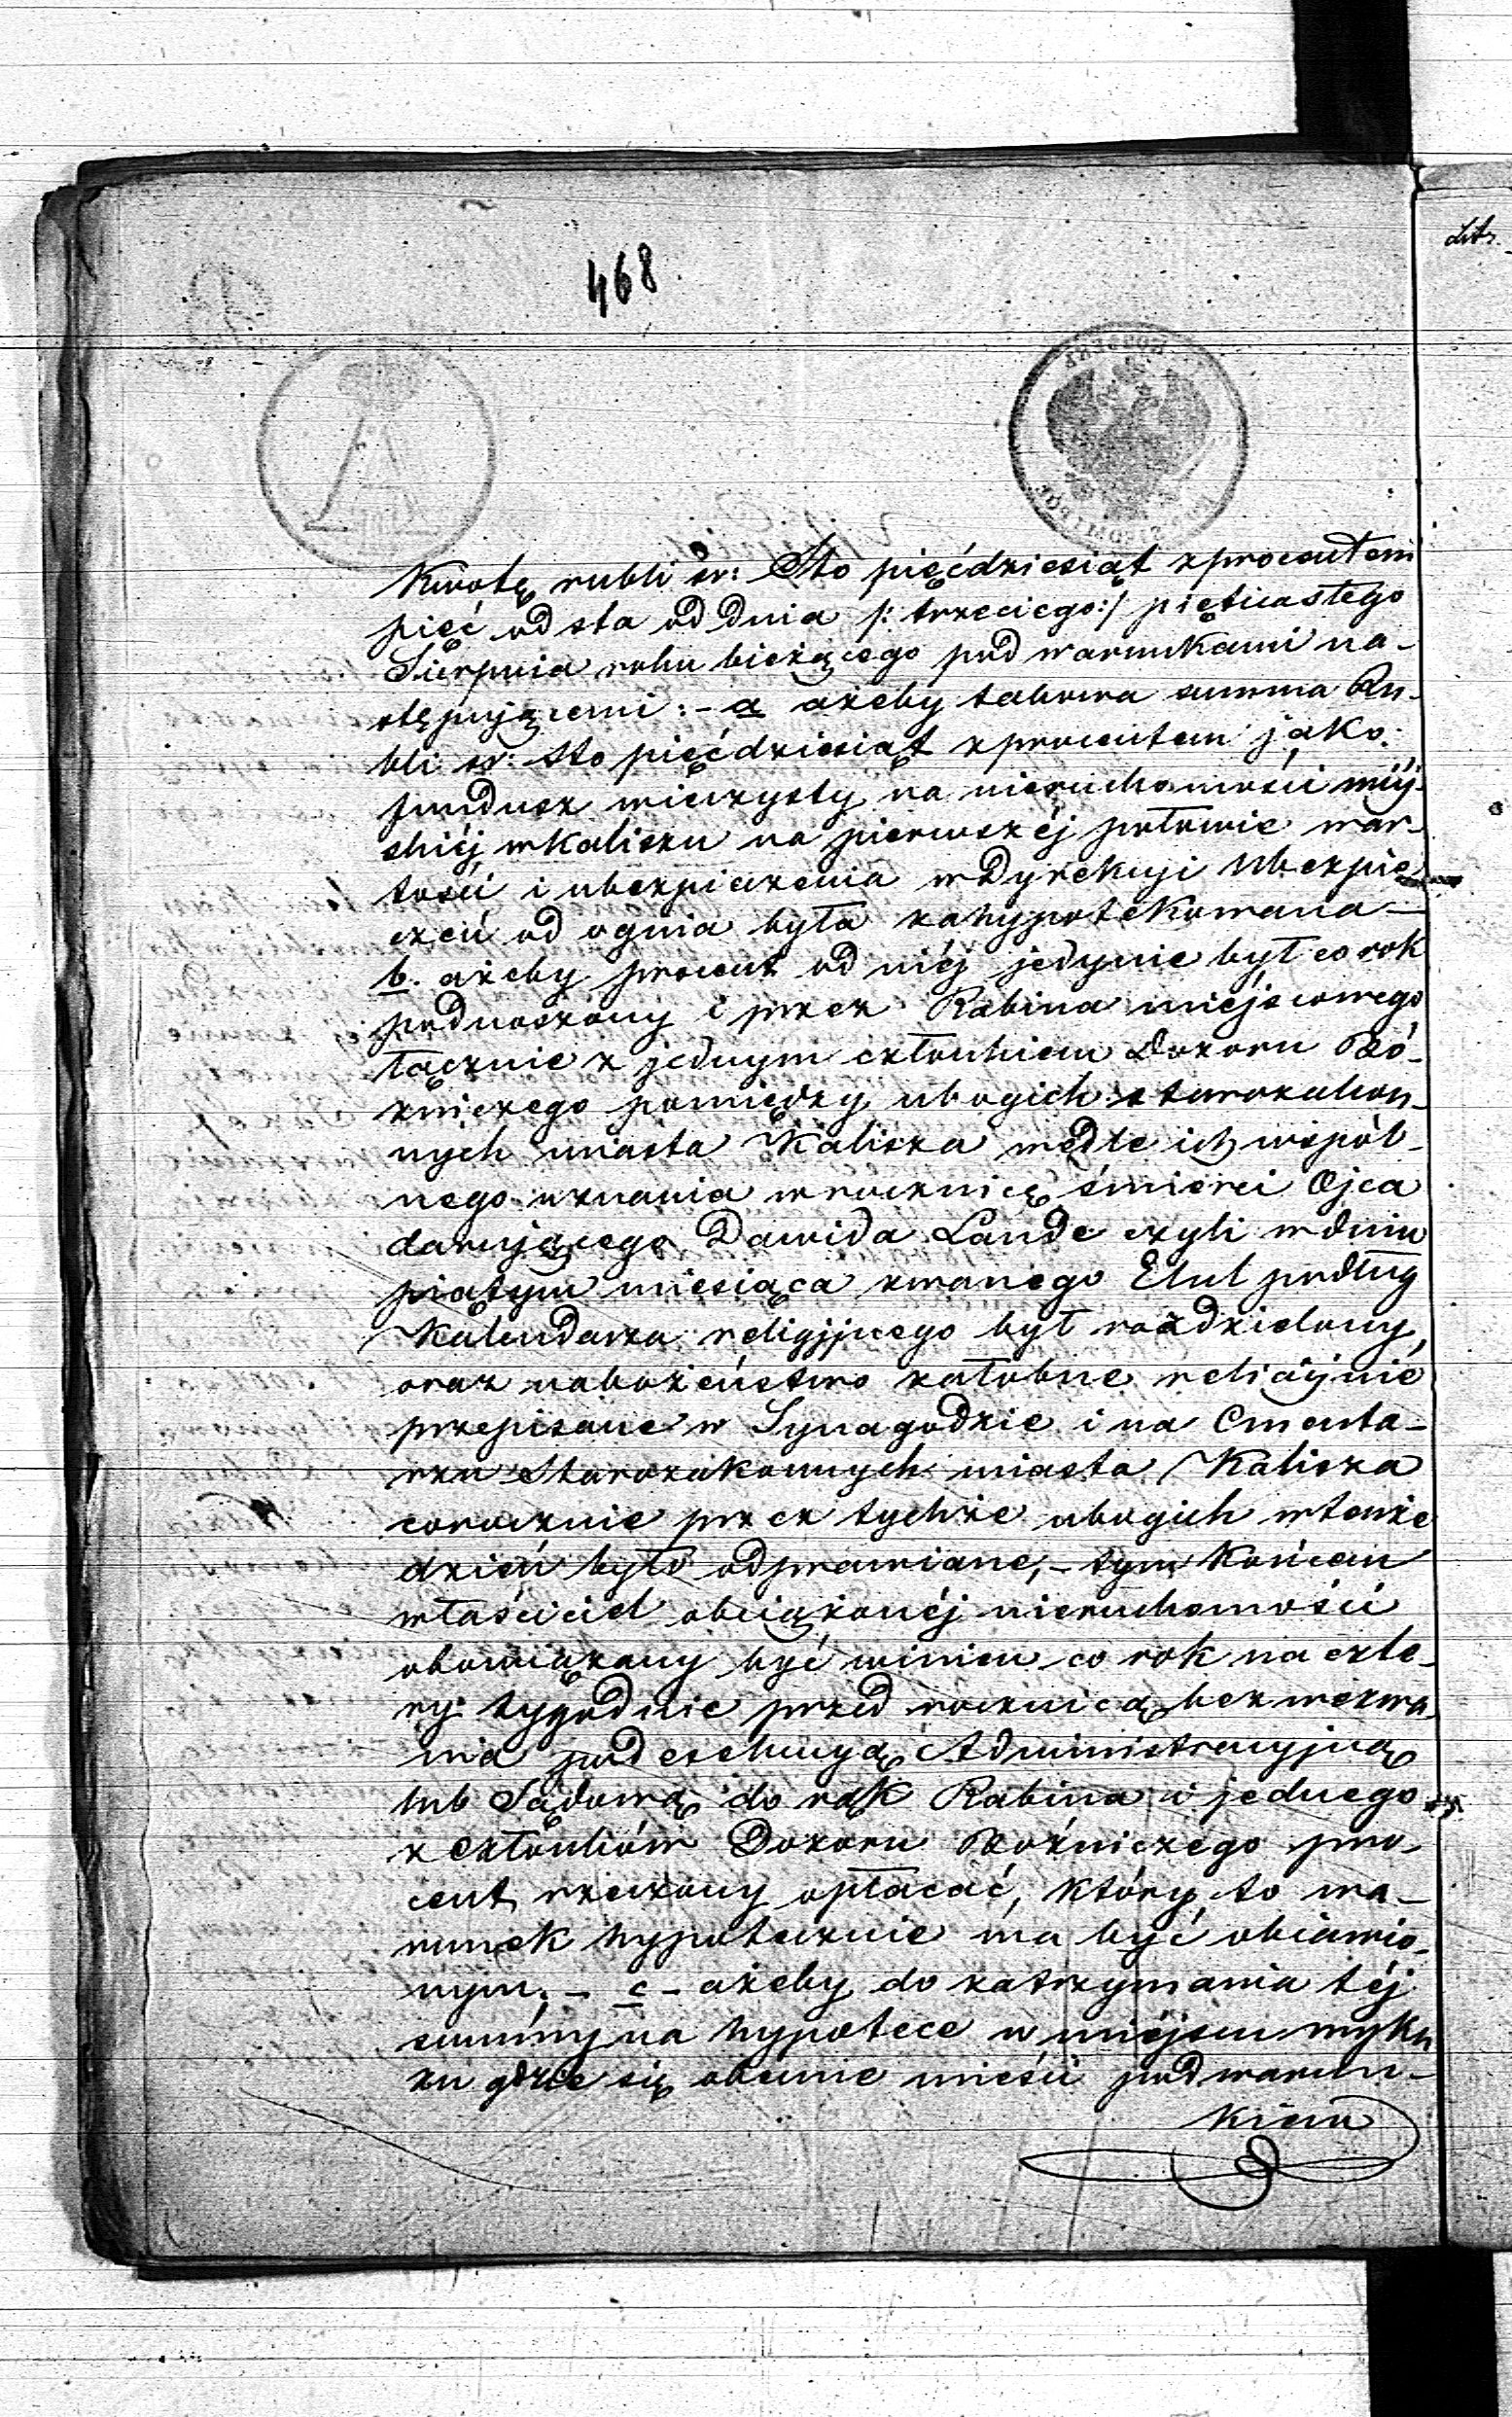 468
Lit.
Kwotę rubli sr: Sto pięćdziesiąt z procentem
pięć od sta od dnia /: trzeciego:/ piętnastego
Sierpnia roku bieżącego pod warunkami na-
stępującemi: - a ażeby takowa summa Ru-
bli sr: sto pięćdziesiąt z procentem jako
fundusz wieczysty na nieruchomości miéj-
skiéj w Kaliszu na pierwszéj połowie war-
tości i ubezpieczenia w Dyrekcyi Ubezpie
czeń od ognia była zahypotekowana -
b. ażeby procent od niéj jedynie był co rok
podnoszony i przez Rabina miejscowego
łącznie z jednym członkiem Dozoru Bó-
zniczego pomiędzy ubogich starozakon-
nych miasta Kalisza wedle ich wspól-
nego uznania w rocznicę śmierci Ojca
darującego Dawida Lande czyli w dniu
piątym miesiąca zwanego Elul podług
Kalendarza religijnego był rozdzielony,
oraz nabożeństwo żałobne religijnie
przepisane w Synagodze i na Cmenta-
rzu Starozakonnych miasta Kalisza
corocznie przez tychże ubogich w tenże
dzień było odprawiane, - tym końcem
właściciel obciążonéj nieruchomości
obowiązany być winien co rok na czte-
ry tygodnie przed rocznicą bez wezwa-
nia pod exekucyą Administracyjną
lub Sądową do rąk Rabina i jednego
z członków Dozoru Bóżniczego pro-
cent rzeczony opłacać, który to wa-
runek hypotecznie ma być objawio-
nym. - c - ażeby do zatrzymania téj
summy na hypotece w miéjscu wyka
zu gdzie się obecnie mieści pod warun-
kiem